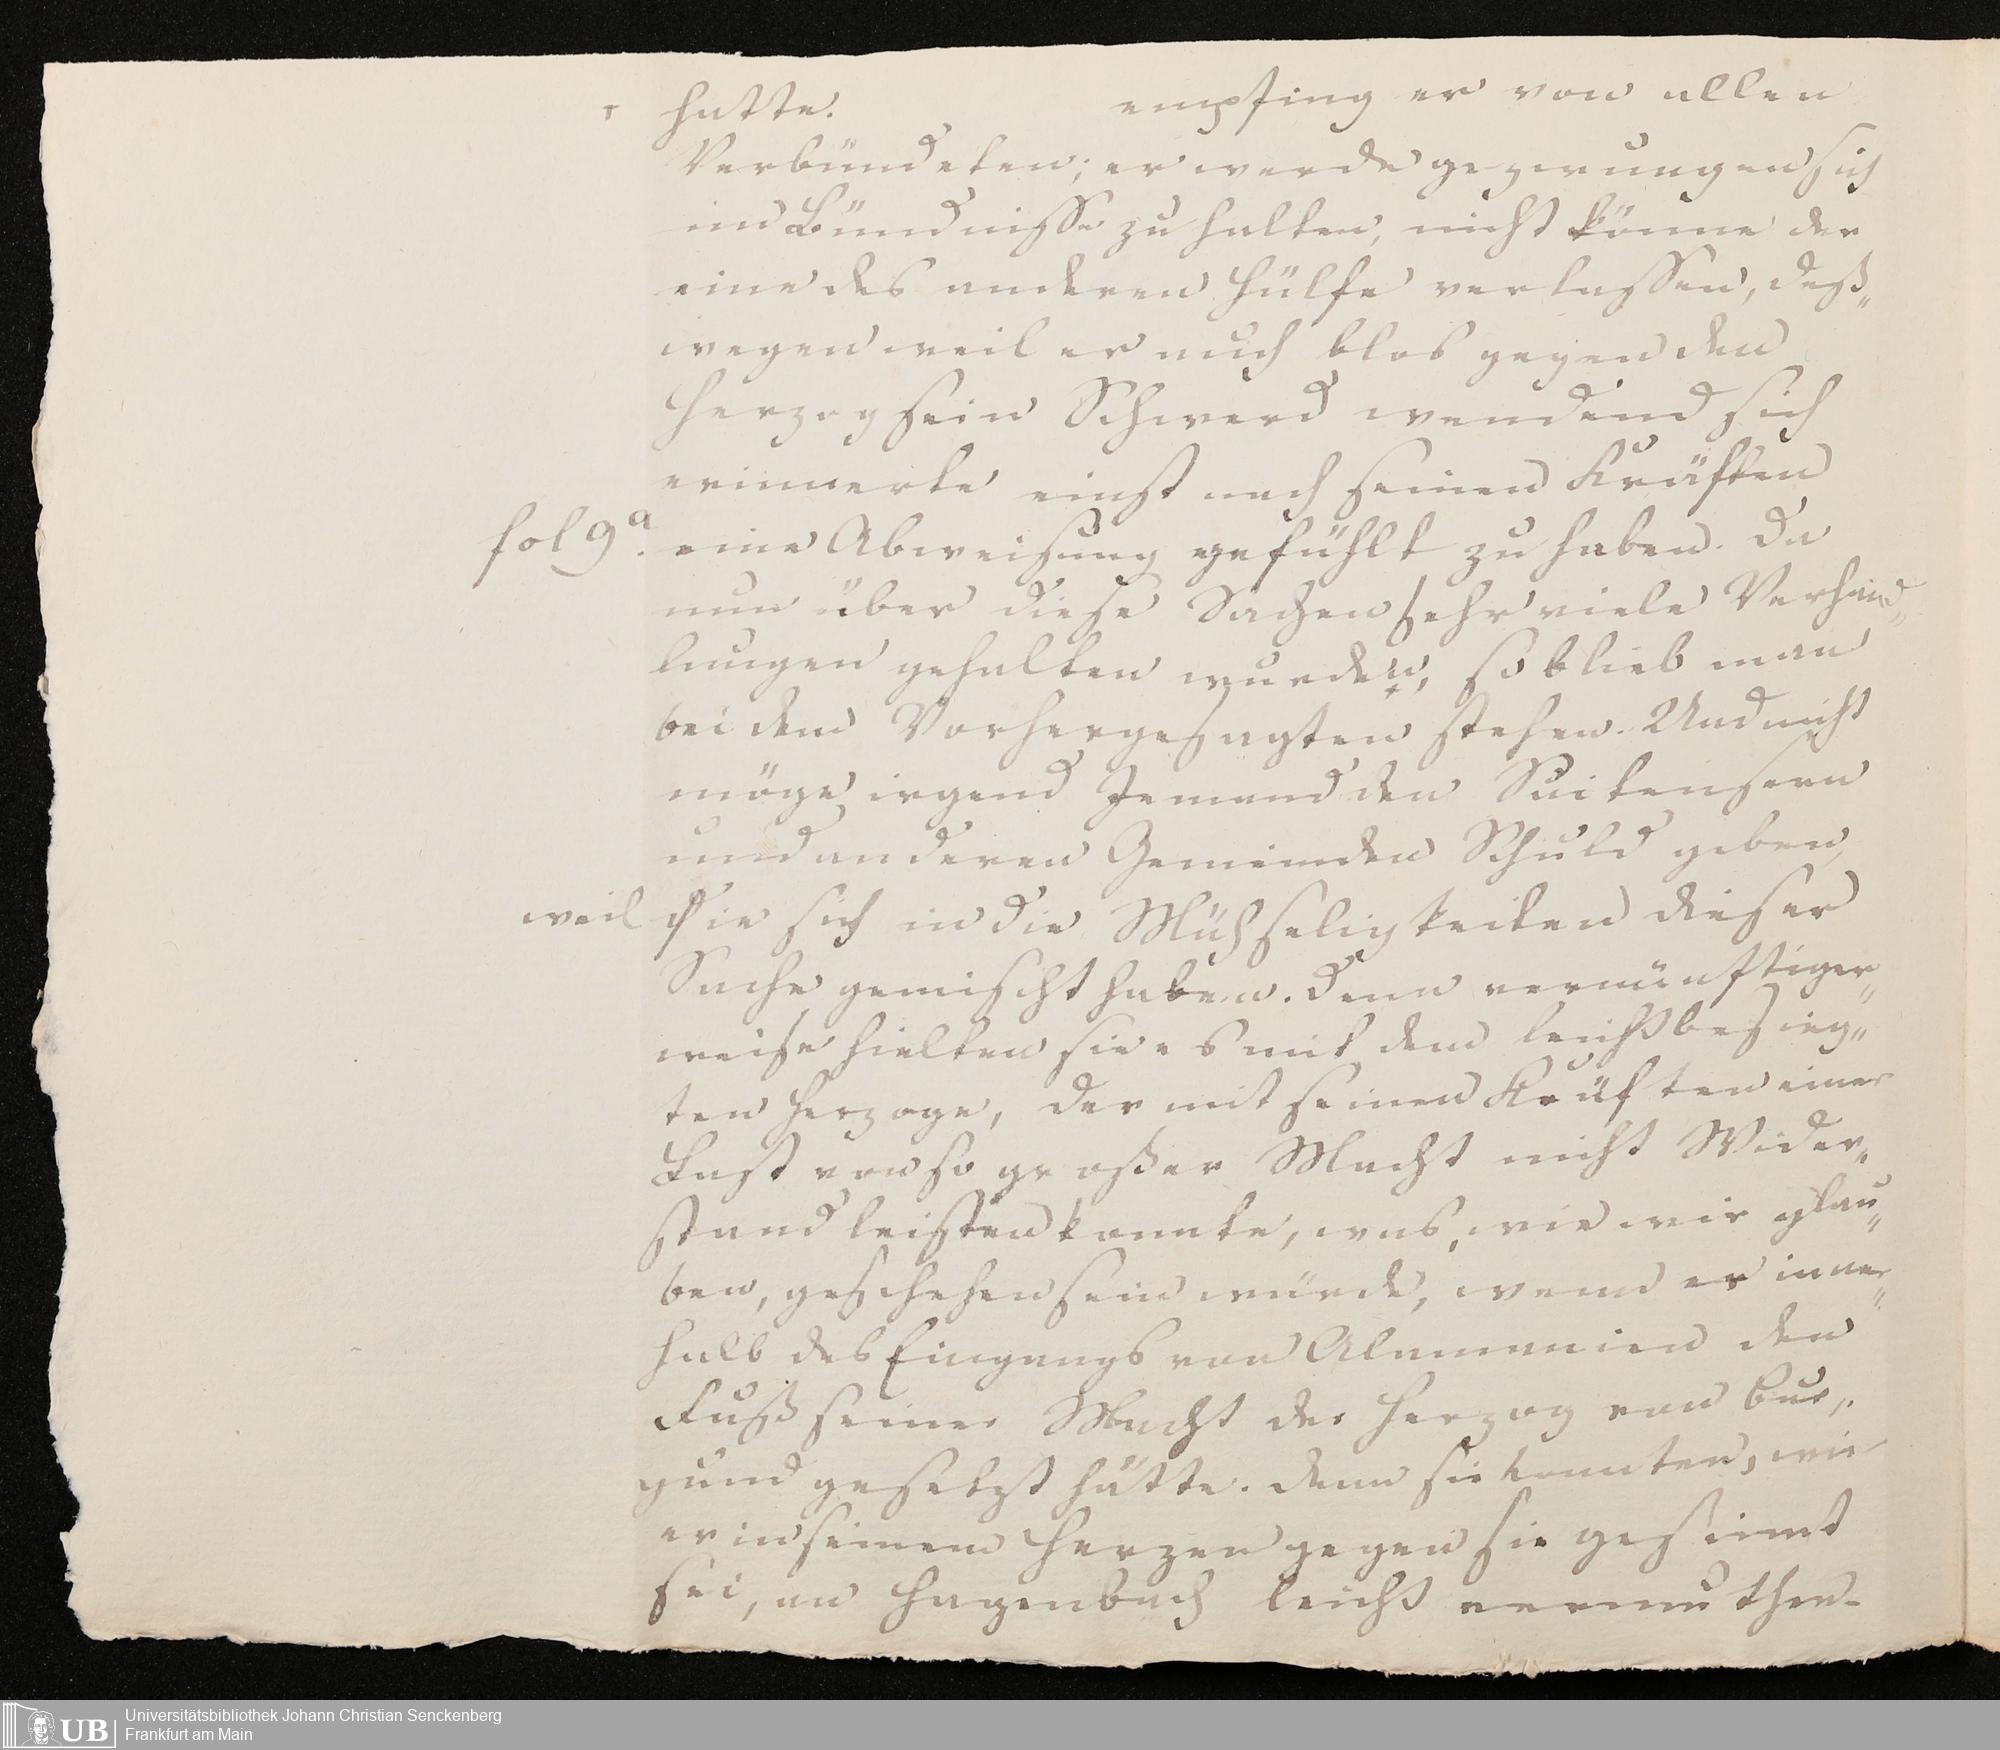 hatte. empfing er von allen
Verbündeten; er werde gezwungen sich
im Bündnisse zu halten, nicht könne der
eine des anderen Hülfe verlassen, deß„
wegen weil er auch blos gegen den
Herzog sein Schwerd wendend sich
erinnerte einst nach seinen Kräften
fol 9a. eine Abweisung gefühlt zu haben. Da
nun über diese Sachen sehr viele Verhand„
lungen gehalten wurden, so blieb man
bei dem Vorhergesagten stehen. Und nicht
möge irgend Jemand den Suitensern
und anderen Gemeinden Schuld geben,
weil sie sich in die Mühseligkeiten dieser
Sache gemischt haben. Denn vernünftiger„
weise hielten sie es mit dem leicht besieg„
ten Herzoge, der mit seinen Kräften einer
Last von so großer Macht nicht Wider„
stand leisten konnte, was, wie wir glau„
ben, geschehen sein würde, wenn er inner„
halb des Eingangs von Alamanien den
Fuß seiner Macht der Herzog von Bur„
gund gesetzt hätte. Denn sie konnten, wie
er in seinem Herzen gegen sie gesinnt
sei, an Hagenbach leicht vermuthen.